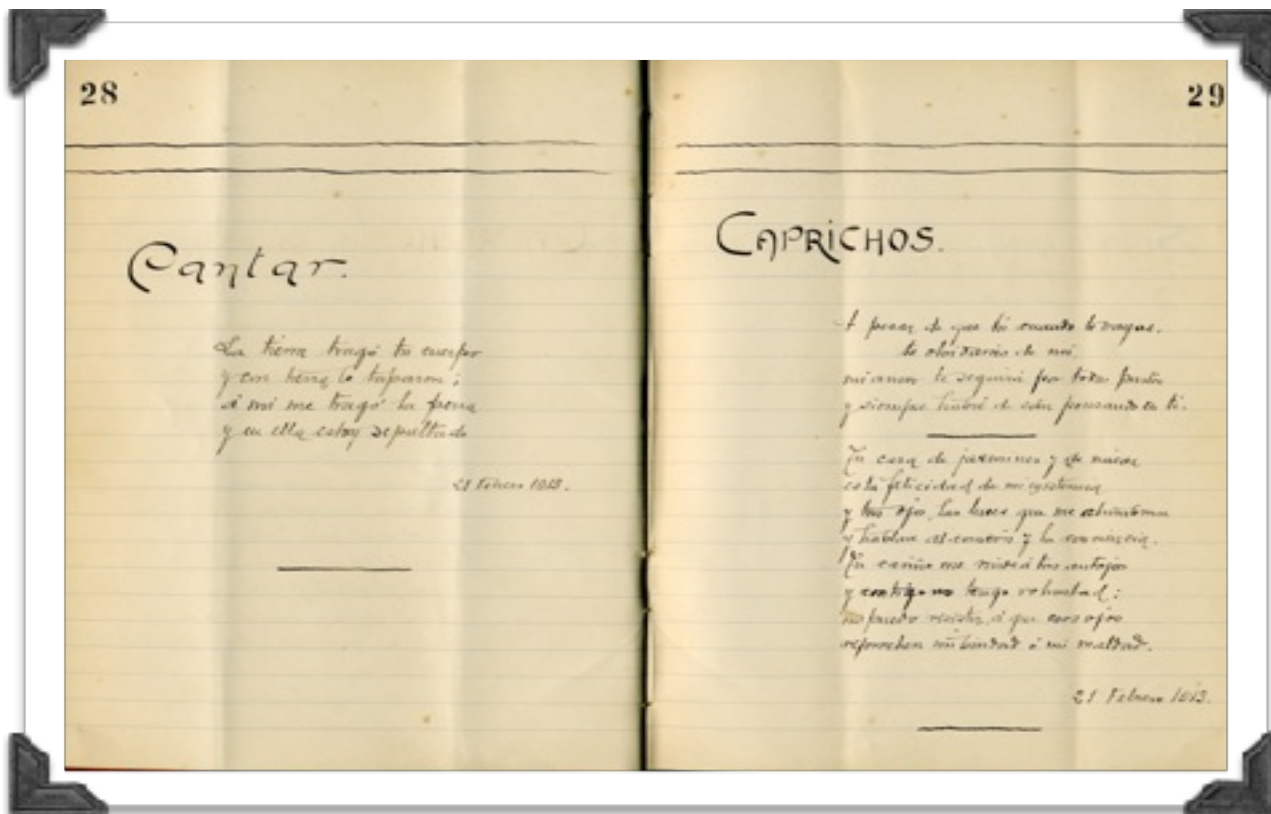 28
Cantar.
La tierra tragó tu cuerpo
y con tierra lo taparon;
á mi me tragó la pena
y en ella estoy sepultado
21 Febrero 1913.
29
CAPRICHOS.
A pesar de que tú cuando te vayas.
te olvidarás de mi
mi amor te seguirá por todas partes
y siempre habré de estar pensando en ti.
Tu cara de jazmines y de nacar
es la felicidad de mi existencia
y tus ojos, las luces que me
y hablan al corazón y la conciencia.
Tu cariño me rinde á tus antojos
y contigo no tengo voluntad;
no puedo resistir, á que esos ojos
reprochen mi bondad ó mi maldad.
21 Febrero 1913.